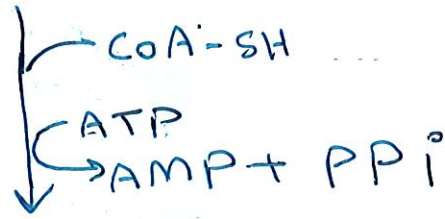 CoA-SH
ATP
AMP + PPi